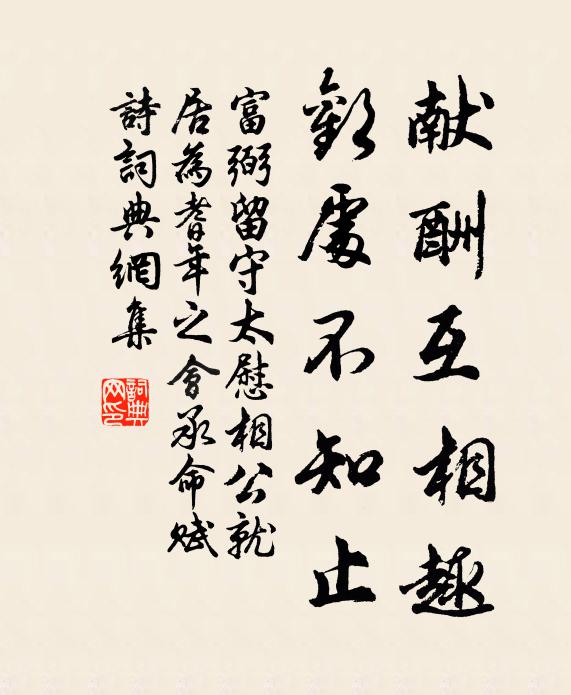 献酬互相趣
歡處不知止
富弼留守太慰相公就
居為耆年之會承命賦
詩詞典網集
詞典網印